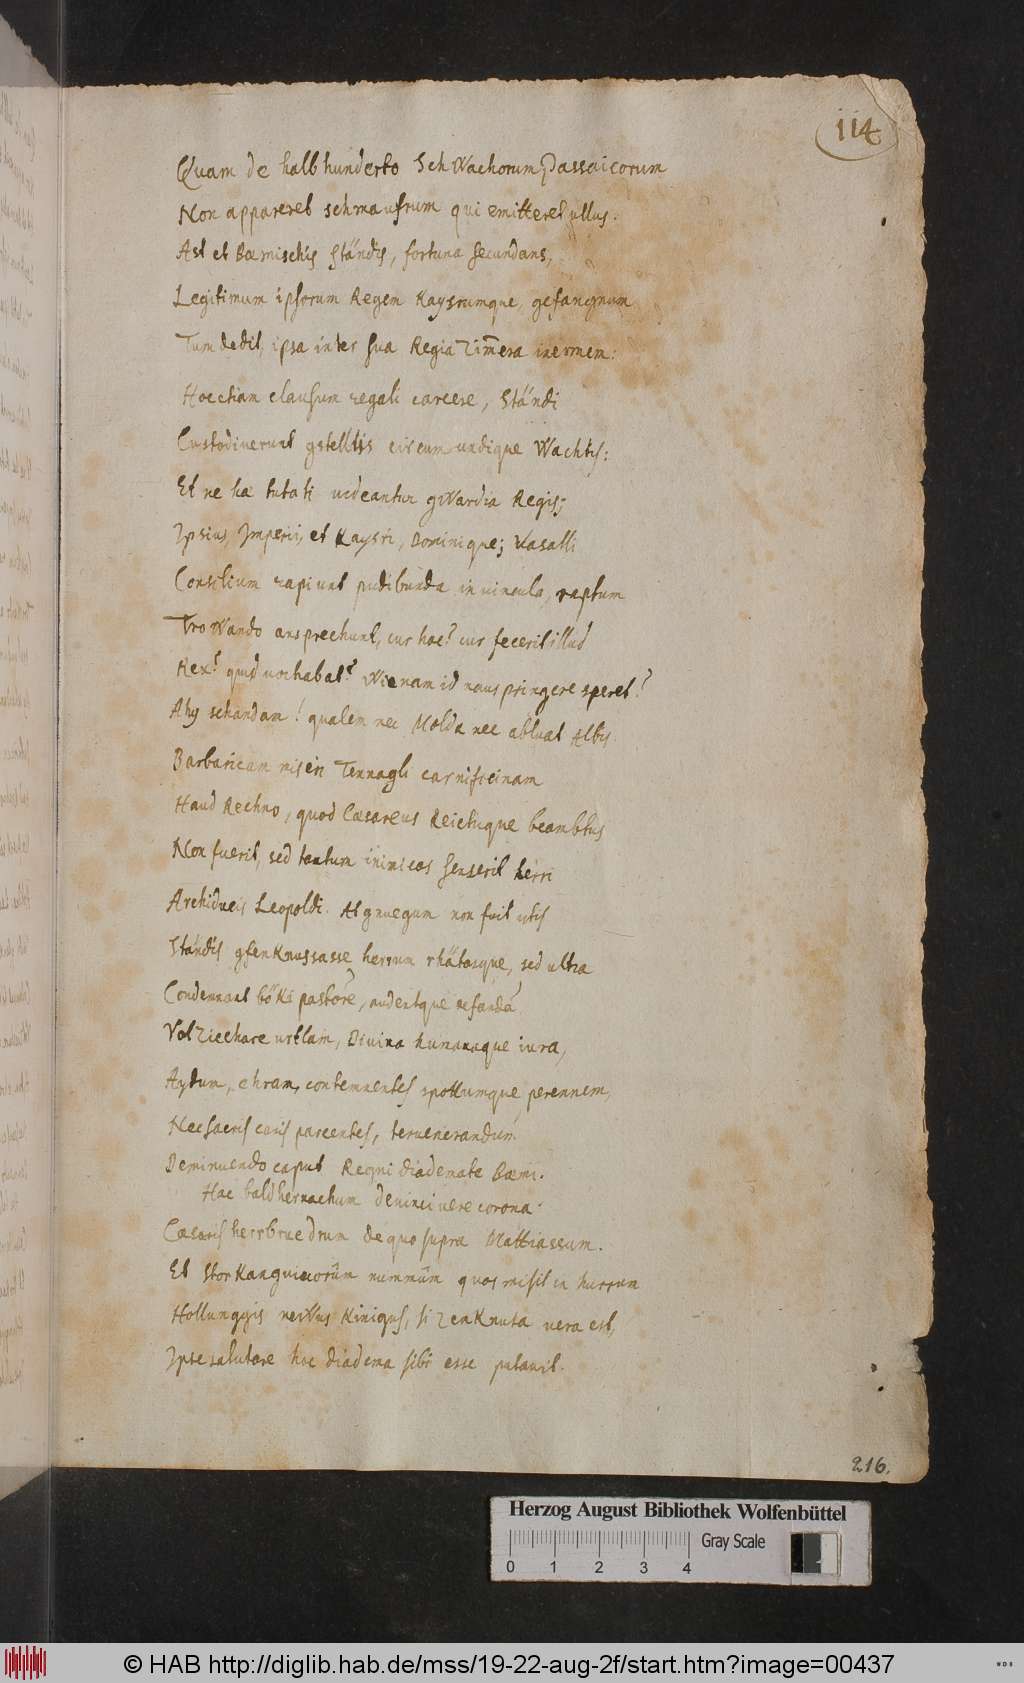 114
Quam de halbhunderto SchWachorum Passaicorum
Non appareret schmaufrum qui emitteret ullus.
Ast et Bœmischis Ständis, fortuna secundans,
Legitimum ipsorum Regem Kaysrumque, gefangnum
Tum dedit, ipsa inter sua Regia Zim̄era inermem:
Hoc etiam clausum regali carcere, Ständi
Custodiverunt gstelltis circum undique Wachtis:
Et ne hæ tutati videantur gWardia Regis;
Ipsius, Imperii, et Kaysri, Dominique; Vasalli
Consilium rapiunt pudibunda in vincula, raptum
TroWando ansprechunt, cur hoc? cur fecerit illud
Rex? quid vorhabat? Wienam id nauspringere speret?
Ahy schandam! qualem nec Molda nec abluat Albis
Barbaricam miseri Tennagli carnificinam
Haud Rechno, quod Cæsareus Reichique beambtus
Non fuerit, sed tantum inimicos senserit herri
Archiducis Leopoldi. At gnuegum non fuit istis
Ständis gfenKnussasse herrum rhätosque, sed ultra
Condemnant böKi pastore, audentque nefanda
Volziechare urtlam, Divina humanaque iura,
Aydum, ehram, contemnentes spottumque perennem,
Nec sacris caris parcentes, ter venerandum
Deminuendo caput Regni diademate Bœmi.
Hac bald hernachum devincivere corona
Cæsaris herrbruedrum de quo supra Mattiassum.
Et StorKanguicorum nummum quos misit in hurrum
Hollunggis neWus Kinigus, si zenKnuta vera est,
Ipse salutare hoc diadema sibi esse putavit.
216.
Herzog August Bibliothek Wolfenbüttel
Gray Scale
0 1 2 3 4
© HAB http://diglib.hab.de/mss/19-22-aug-2f/start.htm?image=00437